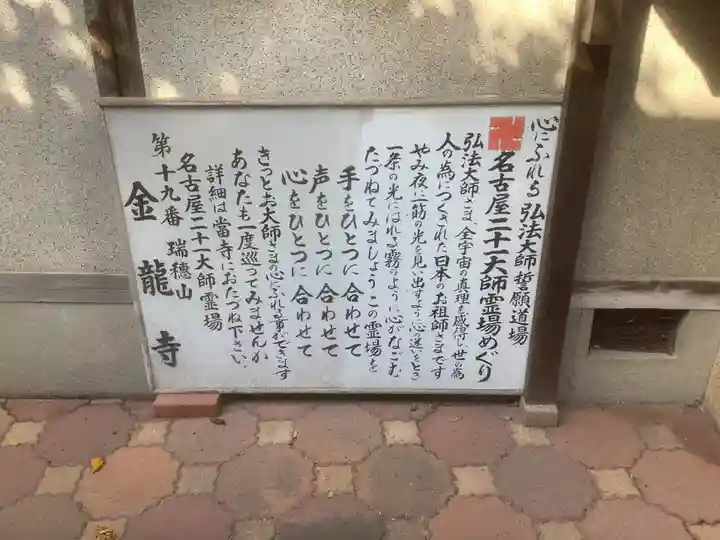 心にふれる 弘法大師 誓願道場
卍 名古屋二十一大師霊場めぐり
弘法大師さま、全宇宙の真理を感得し世の為
人の為につくされた日本のお祖師さまです
やみ夜に一筋の光を見い出すよう心迷いしとき
一条の光にはれる霧のように心がなごむ
たづねてみましょうこの霊場を
手をひとつに合わせて
声をひとつに合わせて
心をひとつに合わせて
きっとお大師さまの心にふれる事ができます
あなたも一度巡ってみませんか
詳細は當寺におたづね下さい、
名古屋二十一大師霊場
第十九番 瑞穂山
金龍寺